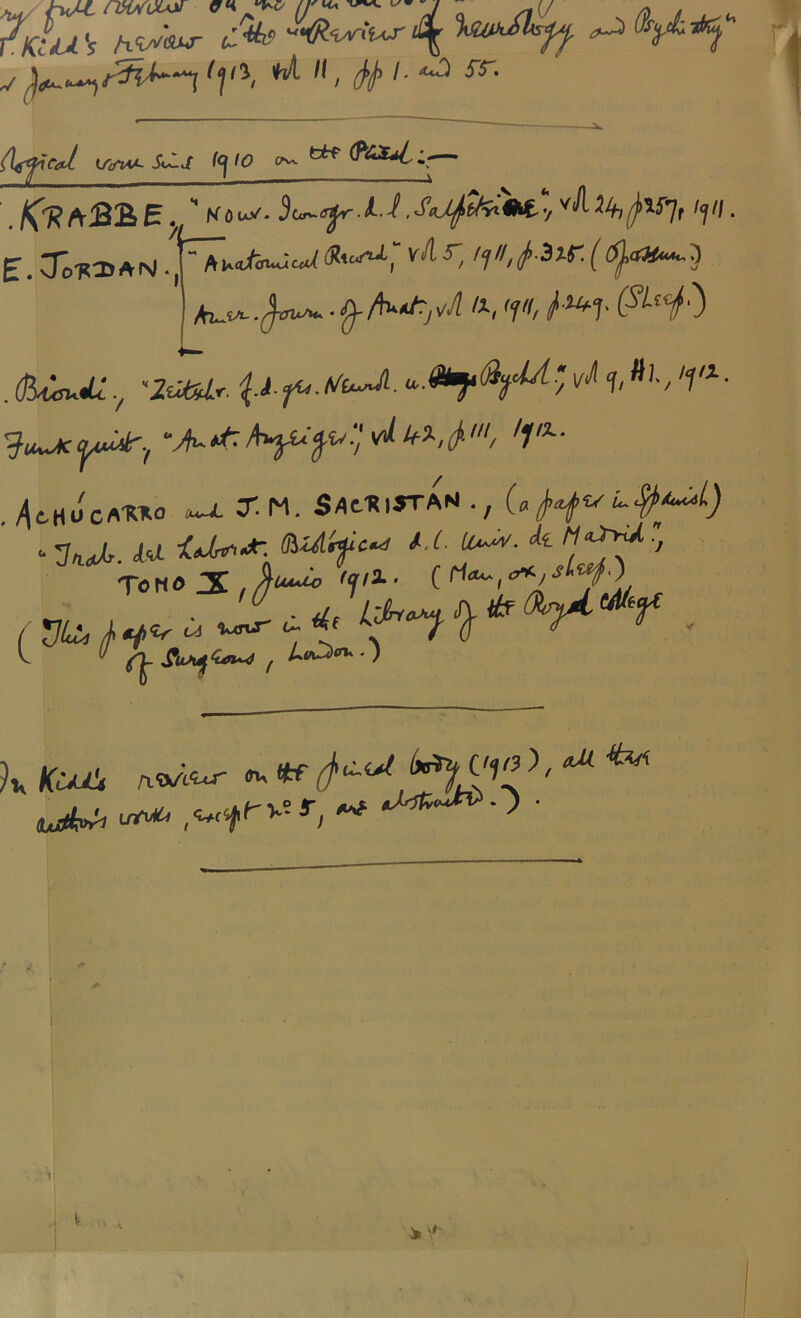 full review on the
Dr. Kidd's review in the "Review of Neurology and Psychiatry"
for January 1913, vol 11, pp 1. and 55.
Original views since 1910 on the Pineal :—
. KRABBE, "Nouv. Iconogr. d. l. Salpêtrière", vol 24, p 257, 1911.
E. JORDAN. "Anatomical Record," vol 5, 1911, p. 325. (Opossum.)
Amer. Journ. of Anat., vol 12, 1911, p. 249. (Sheep.)
. Biondi., "Zeitschr. f. d. ges. Neurol. u. Psychol.", vol 9, 1912.
"Anat. Anzeiger", vol 42, p. 111, 1912.
. ACHÚCARRO and J. M. SACRISTÁN., (a paper in Spanish)
"Trab. del Labrat. Biológicas d. l. Univ. de Madrid",
TOMO X, Junio 1912. (Man, ox, sheep.)
(This paper is now in the Library of the Royal College
of Surgeons, London.)
In Kidd's review on the pineal body (1913), all these
authors' works, except No 5, are abstracted.) .